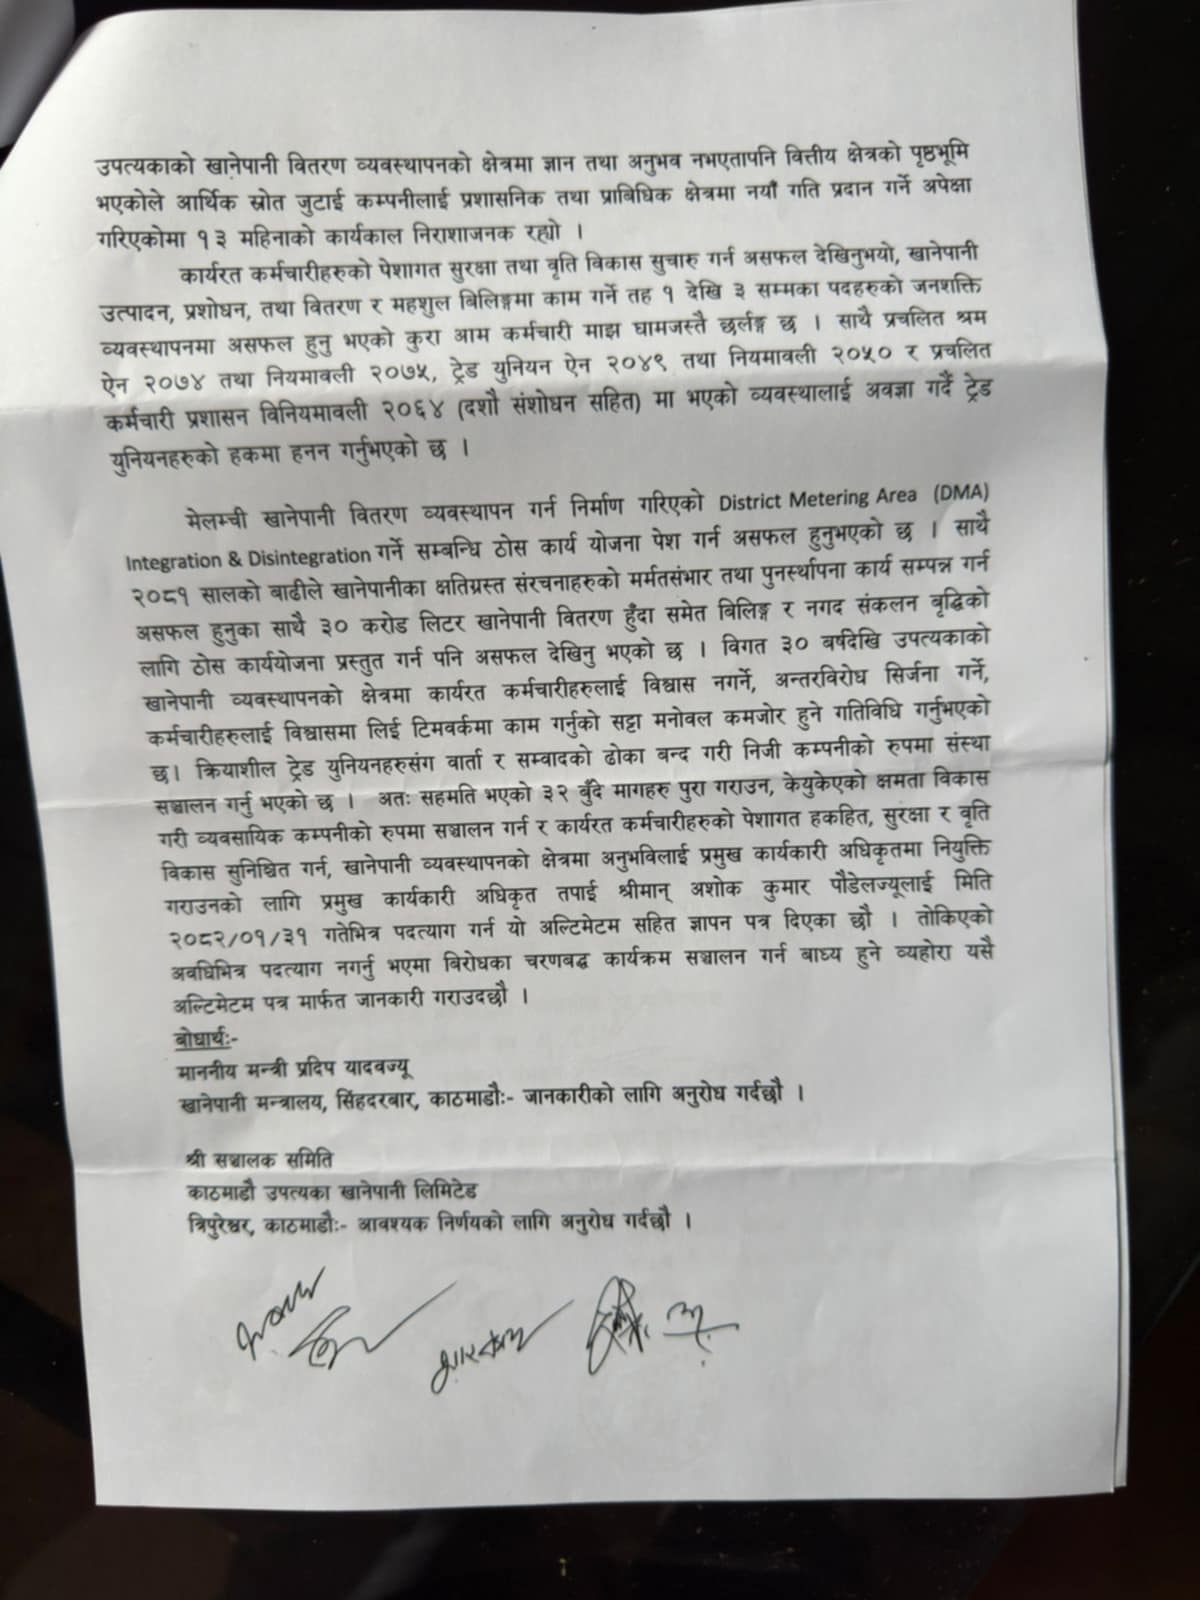 उपत्यकाको खानेपानी वितरण व्यवस्थापनको क्षेत्रमा ज्ञान तथा अनुभव नभएतापनि वित्तीय क्षेत्रको पृष्ठभूमि
भएकोले आर्थिक स्रोत जुटाई कम्पनीलाई प्रशासनिक तथा प्राबिधिक क्षेत्रमा नयाँ गति प्रदान गर्ने अपेक्षा
गरिएकोमा १३ महिनाको कार्यकाल निराशाजनक रह्यो ।
कार्यरत कर्मचारीहरुको पेशागत सुरक्षा तथा वृति विकास सुचारु गर्न असफल देखिनुभयो, खानेपानी
उत्पादन, प्रशोधन, तथा वितरण र महशुल बिलिङ्गमा काम गर्ने तह १ देखि ३ सम्मका पदहरुको जनशक्ति
व्यवस्थापनमा असफल हुनु भएको कुरा आम कर्मचारी माझ घामजस्तै छर्लङ्ग छ । साथै प्रचलित श्रम
ऐन २०७४ तथा नियमावली २०७५, ट्रेड युनियन ऐन २०४९ तथा नियमावली २०५० र प्रचलित
कर्मचारी प्रशासन विनियमावली २०६४ (दशौ संशोधन सहित) मा भएको व्यवस्थालाई अवज्ञा गर्दै ट्रेड
युनियनहरुको हकमा हनन गर्नुभएको छ ।
मेलम्ची खानेपानी वितरण व्यवस्थापन गर्न निर्माण गरिएको District Metering Area (DMA)
Integration & Disintegration गर्ने सम्बन्धि ठोस कार्य योजना पेश गर्न असफल हुनुभएको छ । साथै
२०८१ सालको बाढीले खानेपानीका क्षतिग्रस्त संरचनाहरुको मर्मतसंभार तथा पुनर्स्थापना कार्य सम्पन्न गर्न
असफल हुनुका साथै ३० करोड लिटर खानेपानी वितरण हुँदा समेत बिलिङ्ग र नगद संकलन बृद्धिको
लागि ठोस कार्ययोजना प्रस्तुत गर्न पनि असफल देखिनु भएको छ । विगत ३० बर्षदेखि उपत्यकाको
खानेपानी व्यवस्थापनको क्षेत्रमा कार्यरत कर्मचारीहरुलाई विश्वास नगर्ने, अन्तरविरोध सिर्जना गर्ने,
कर्मचारीहरुलाई विश्वासमा लिई टिमवर्कमा काम गर्नुको सट्टा मनोवल कमजोर हुने गतिविधि गर्नुभएको
छ। क्रियाशील ट्रेड युनियनहरुसंग वार्ता र सम्वादको ढोका बन्द गरी निजी कम्पनीको रुपमा संस्था
सञ्चालन गर्नु भएको छ । अतः सहमति भएको ३२ बुँदे मागहरु पुरा गराउन, केयुकेएको क्षमता विकास
गरी व्यवसायिक कम्पनीको रुपमा सञ्चालन गर्न र कार्यरत कर्मचारीहरुको पेशागत हकहित, सुरक्षा र वृति
विकास सुनिश्चित गर्न, खानेपानी व्यवस्थापनको क्षेत्रमा अनुभविलाई प्रमुख कार्यकारी अधिकृतमा नियुक्ति
गराउनको लागि प्रमुख कार्यकारी अधिकृत तपाई श्रीमान् अशोक कुमार पौडेलज्यूलाई मिति
२०८२/०१/३१ गतेभित्र पदत्याग गर्न यो अल्टिमेटम सहित ज्ञापन पत्र दिएका छौ । तोकिएको
अवधिभित्र पदत्याग नगर्नु भएमा बिरोधका चरणबद्ध कार्यक्रम सञ्चालन गर्न बाध्य हुने व्यहोरा यसै
अल्टिमेटम पत्र मार्फत जानकारी गराउदछौ ।
बोधार्थः-
माननीय मन्त्री प्रदिप यादवज्यू
खानेपानी मन्त्रालय, सिंहदरबार, काठमाडौः- जानकारीको लागि अनुरोध गर्दछौ ।
श्री सञ्चालक समिति
काठमाडौ उपत्यका खानेपानी लिमिटेड
त्रिपुरेश्वर, काठमाडौः- आवश्यक निर्णयको लागि अनुरोध गर्दछौ ।